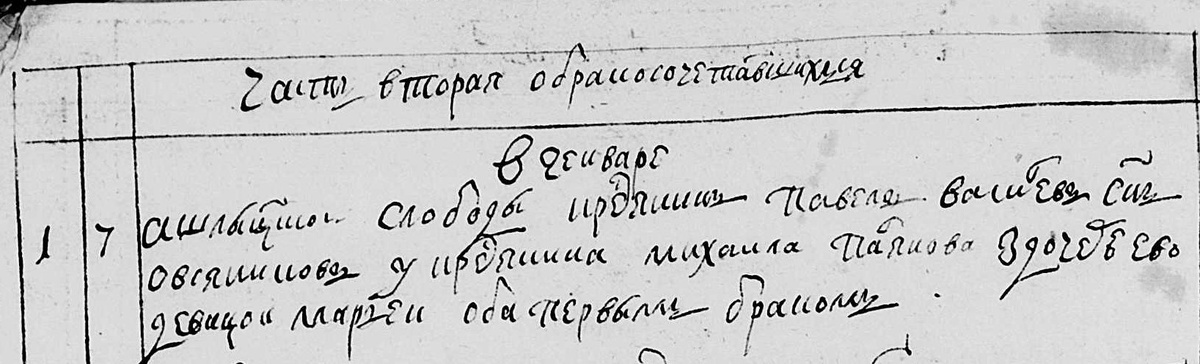 Часть вторая о бракосочетавшихся
В генваре
1 7 слободы крестьянинъ Павелъ Василевъ снъ
Овсяниковъ у крестьянина Михаила Панкова з дочерью ево
девицои Марьеи оба первымъ бракомъ